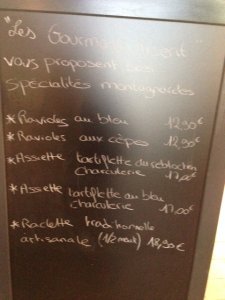 "Les Gourmandisent
vous proposent ses
spécialités montagnardes
*Ravioles au bleu 12,90€
*Ravioles aux cèpes 12,90€
*Assiette tartiflette du reblochon
Charcuterie 17,00€
*Assiette tartiflette au bleu
charcuterie 17,00€
*Raclette traditionnelle
artisanale (1/2 meule) 18,90€